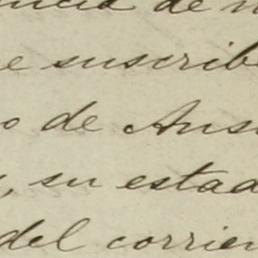 de
e suscribe
o de Aus
, su estad
del corrien